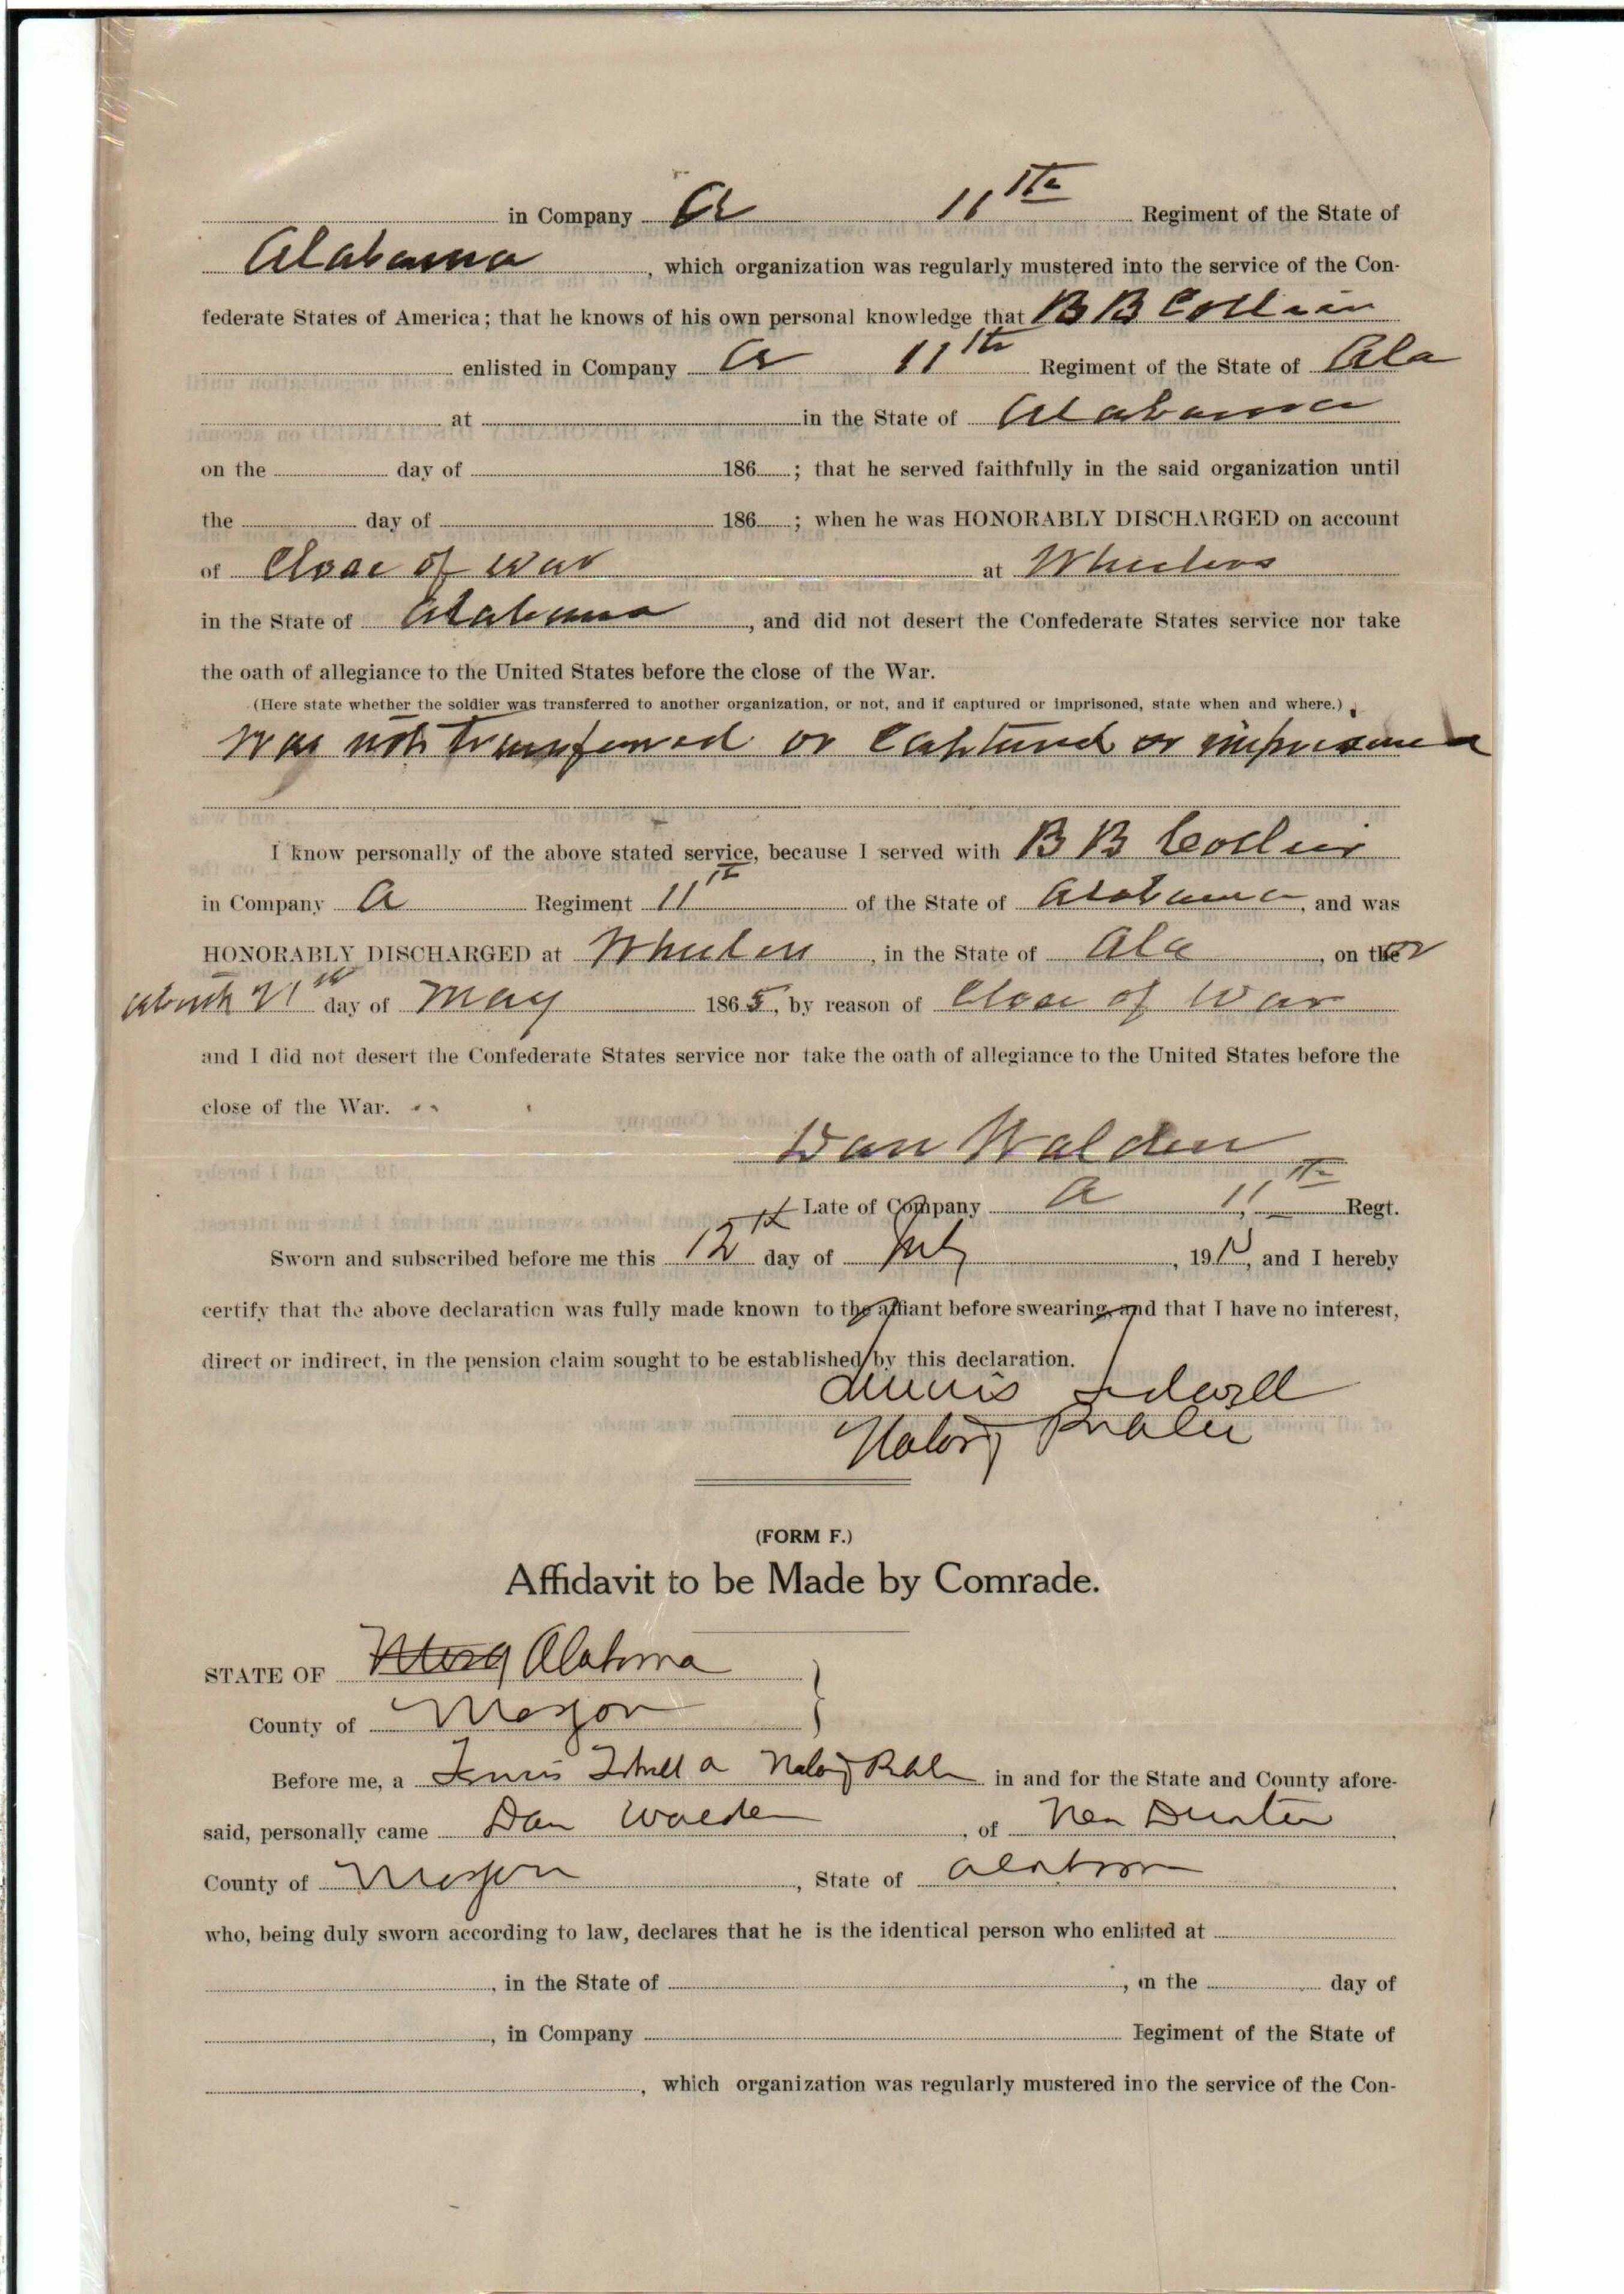 in Company A 11th Regiment of the State of
Alabama, which organization was regularly mustered into the service of the Con-
federate States of America; that he knows of his own personal knowledge that B B Collier
enlisted in Company A 11th Regiment of the State of Ala
at in the State of Alabama
on the day of 186 ; that he served faithfully in the said organization until
the day of 186 ; when he was HONORABLY DISCHARGED on account
of Close of War at Wheelers
in the State of Alabama, and did not desert the Confederate States service nor take
the oath of allegiance to the United States before the close of the War.
(Here state whether the soldier was transferred to another organization, or not, and if captured or imprisoned, state when and where.)
Was not transferred or Captured or imprisoned
I know personally of the above stated service, because I served with B B Collier
in Company A Regiment 11th of the State of Alabama, and was
HONORABLY DISCHARGED at Wheelers, in the State of Ala, on the or
about 21st day of May 1865, by reason of Close of War
and I did not desert the Confederate States service nor take the oath of allegiance to the United States before the
close of the War.
Dan Walden
Late of Company A 11th Regt.
Sworn and subscribed before me this 12th day of July, 191 , and I hereby
certify that the above declaration was fully made known to the affiant before swearing, and that I have no interest,
direct or indirect, in the pension claim sought to be established by this declaration.
Notary Public
(FORM F.)
Affidavit to be Made by Comrade.
STATE OF Alabama
County of Morgan
Before me, a a Notary Public in and for the State and County afore-
said, personally came Dan Walden, of New Decatur
County of Morgan, State of Alabama
who, being duly sworn according to law, declares that he is the identical person who enlisted at
, in the State of , on the day of
, in Company Regiment of the State of
, which organization was regularly mustered into the service of the Con-